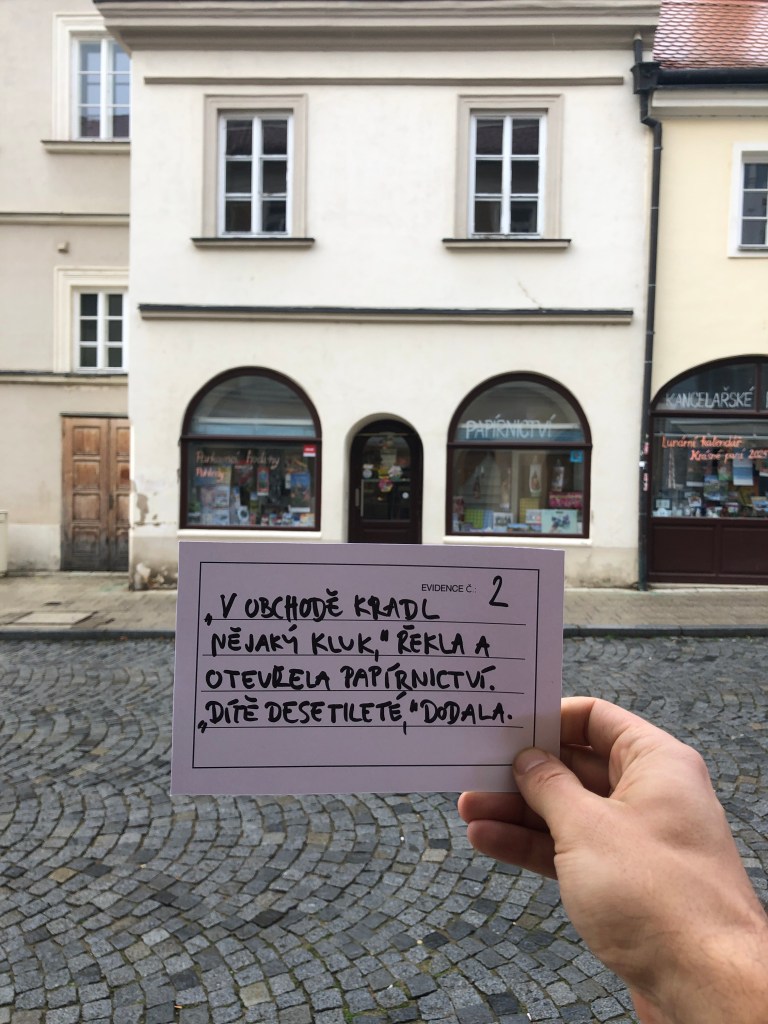 PAPÍRNICTVÍ
KANCELÁŘSKÉ
Lunární kalendář
Krásné paní 2025
Pohledy
EVIDENCE Č. 2
„V OBCHODĚ KRADL
NĚJAKÝ KLUK,“ ŘEKLA A
OTEVŘELA PAPÍRNICTVÍ.
„DÍTĚ DESETILETÉ,“ DODALA.